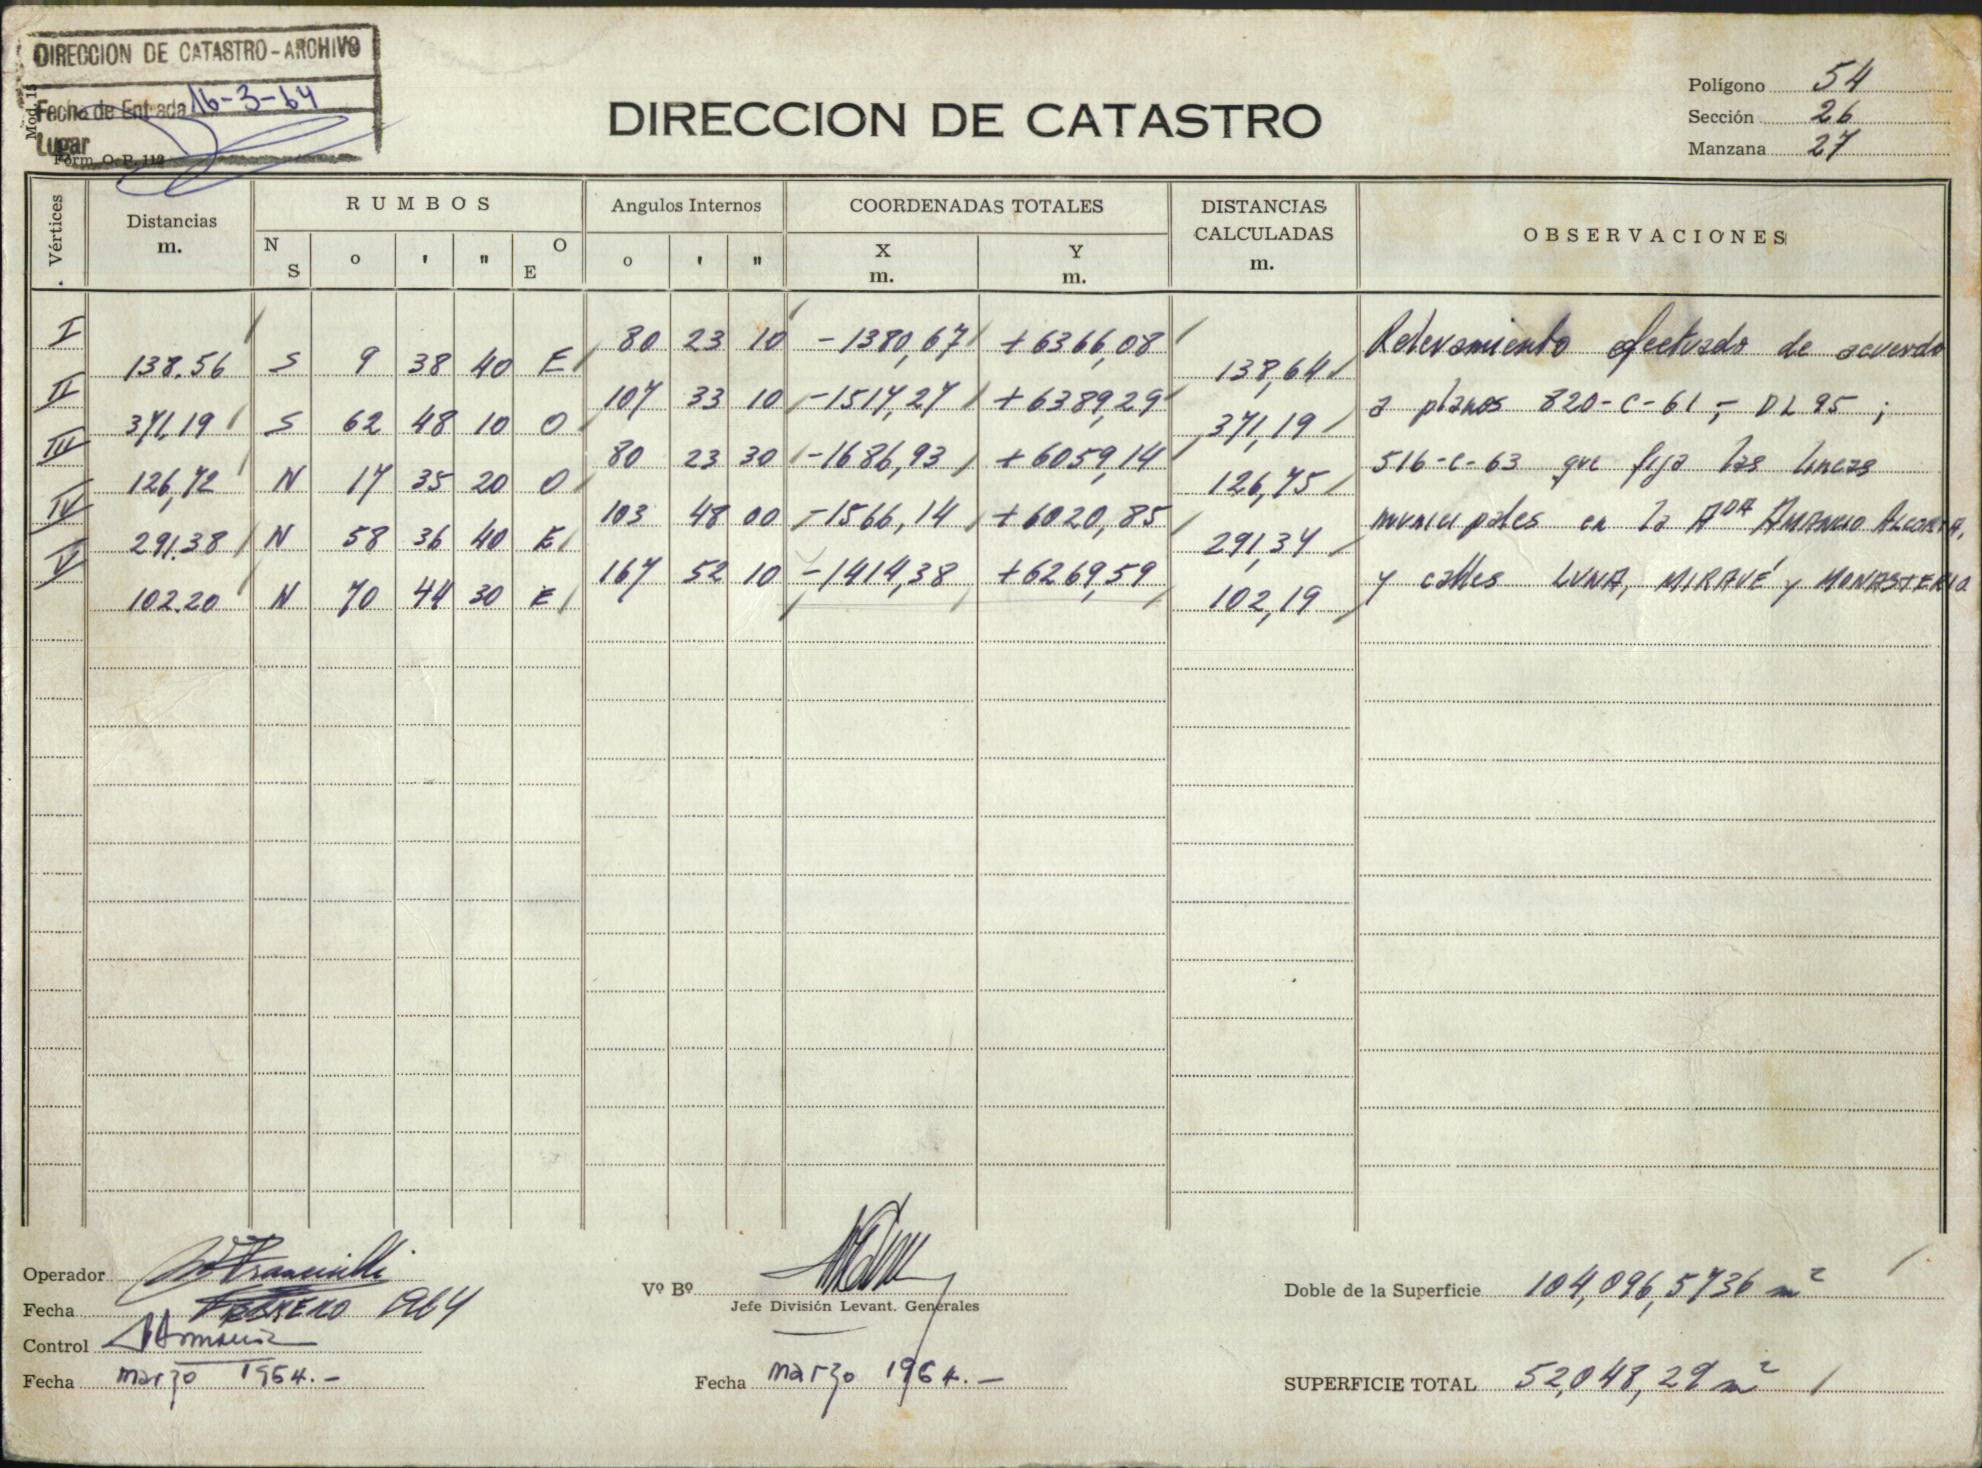 DIRECCION DE CATASTRO - ARCHIVO
Fecha de Entrada 16-3-64
Lugar
Mod. 15
Form. O. P. 112
DIRECCION DE CATASTRO
Polígono 54
Sección 26
Manzana 27
Vértices Distancias m. RUMBOS N S o ' " O E Angulos Internos o ' " COORDENADAS TOTALES X m. Y m. DISTANCIAS CALCULADAS m. OBSERVACIONES
I 80 23 10 -1380,67 +6366,08 Relevamiento efectuado de acuerdo
138.56 S 9 38 40 E 138,64
II 107 33 10 -1517,27 +6389,29 a planos 820-C-61,- DL 95 ;
371,19 S 62 48 10 O 371,19
III 80 23 30 -1686,93 +6059,14 516-C-63 que fija las lineas
126,72 N 17 35 20 O 126,75
IV 103 48 00 -1566,14 +6020,85 municipales en la Aда AMANCIO ALCORTA,
291.38 N 58 36 40 E 291,34
V 167 52 10 -1414,38 +6269,59 y calles LUNA, MIRAVÉ y MONASTERIO
102.20 N 70 44 30 E 102,19
Operador
Fecha FEBRERO 1964
Control
Fecha marzo 1964.-
Vº Bº
Jefe División Levant. Generales
Fecha marzo 1964.-
Doble de la Superficie 104,096,5736 m²
SUPERFICIE TOTAL 52,048,29 m²